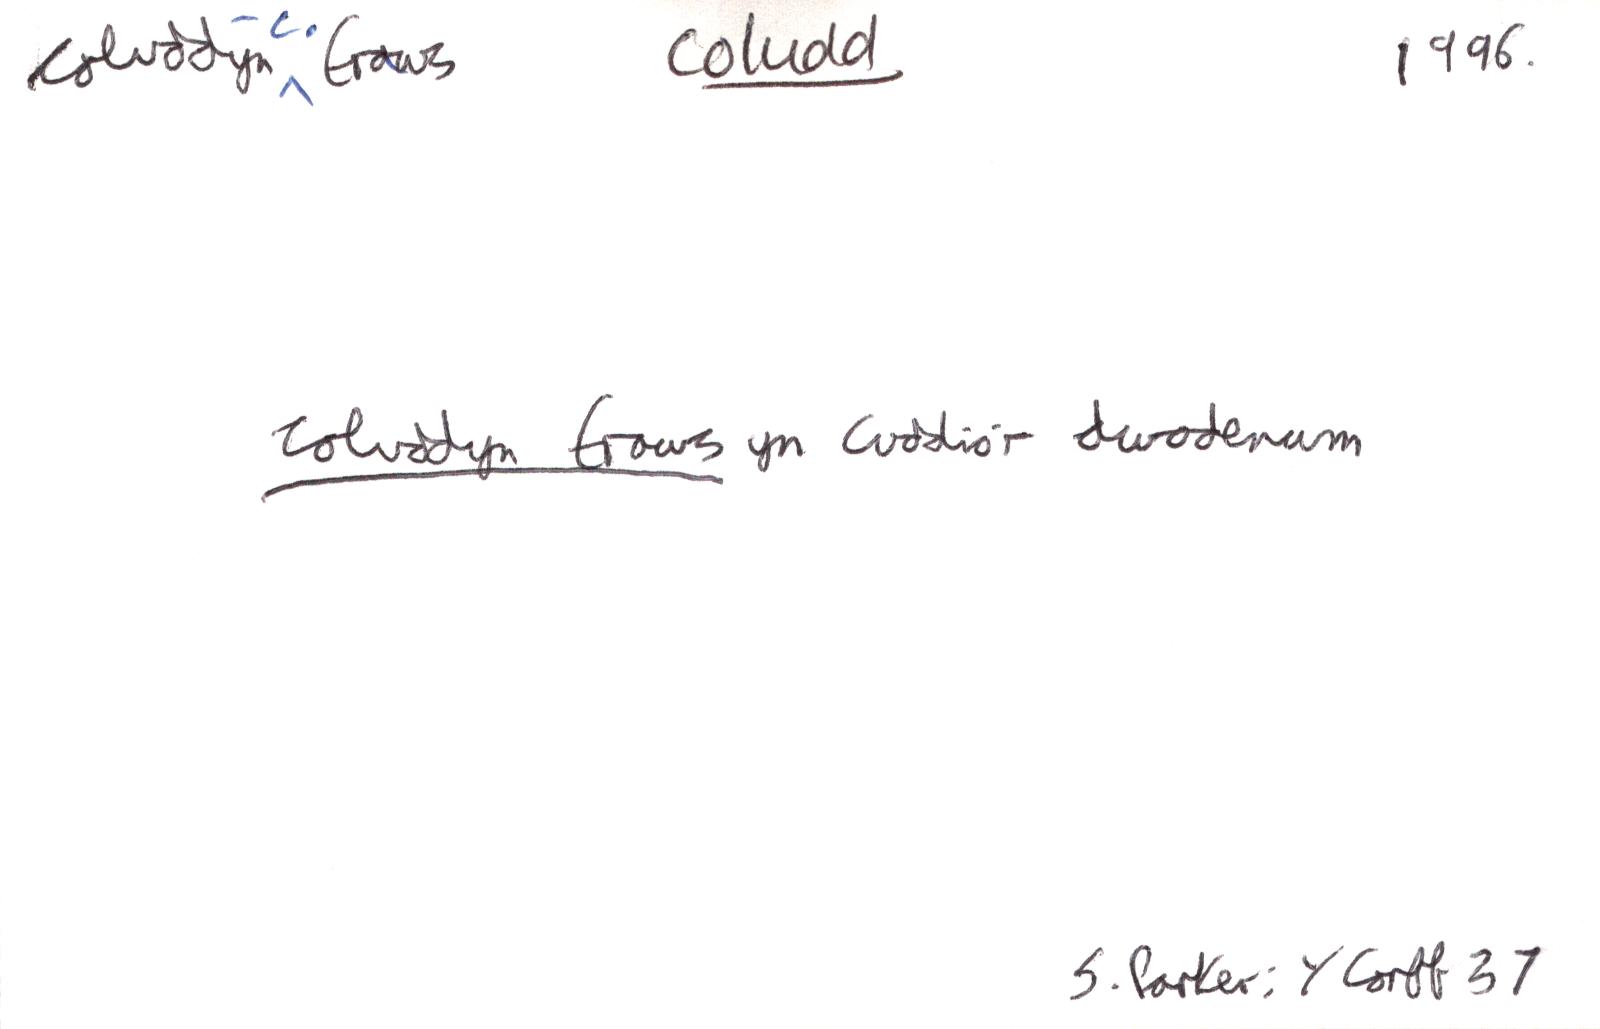 coluddyn - c. traws coludd 1996.
coluddyn traws yn cuddio'r dwodenwm
S. Parker: Y Corff 37